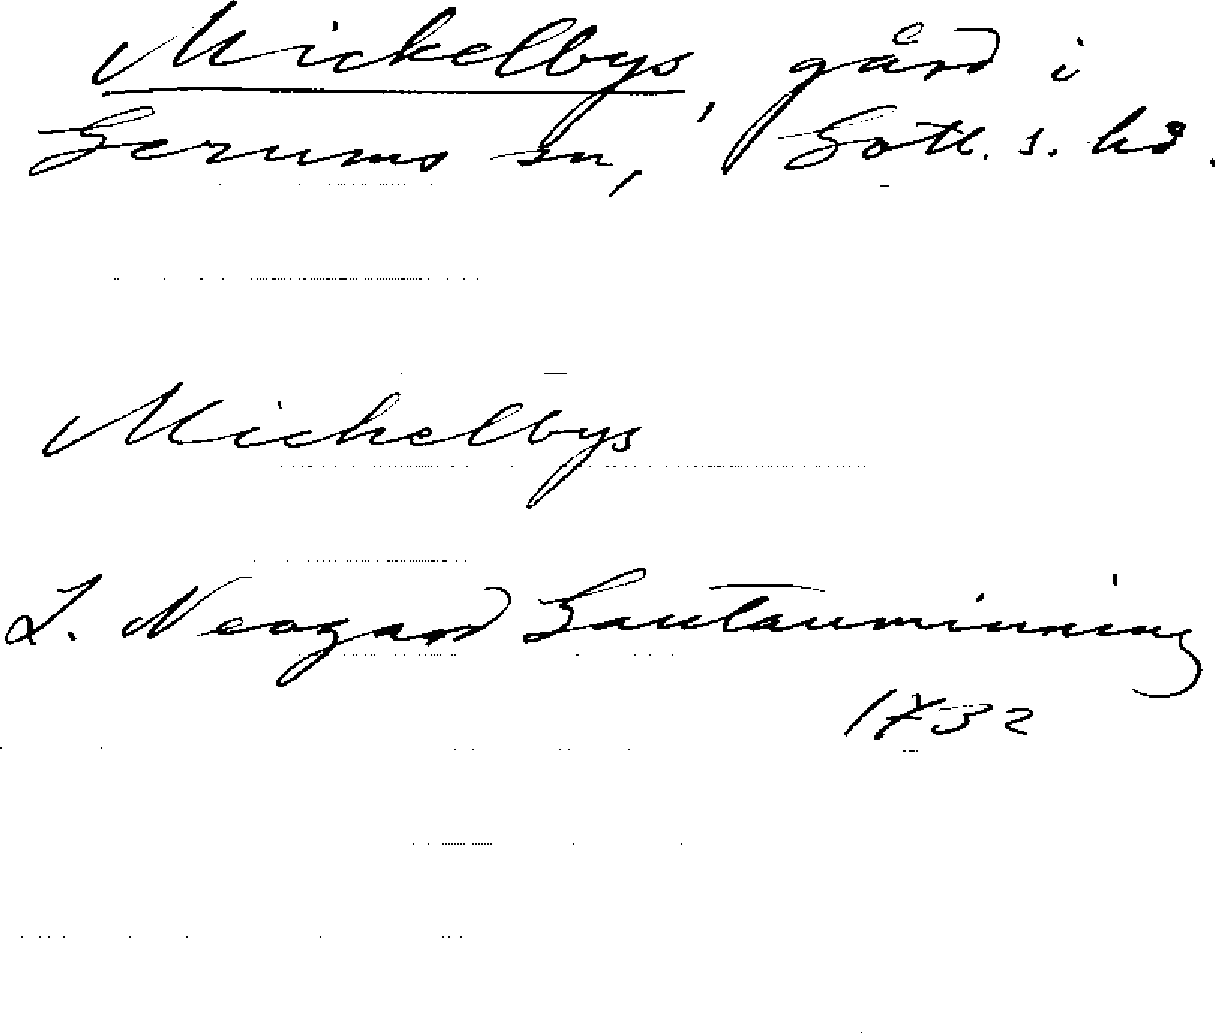 Mickelbys, gård i
Gerums sn, Gotl. s. hd.
Mickelbys
L. Neogard Gautauminning
1732